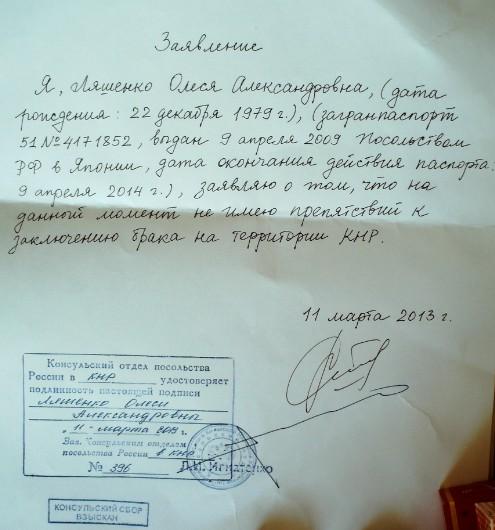 Заявление
Я, Ляшенко Олеся Александровна, (дата
рождения: 22 декабря 1979 г.), (загранпаспорт
51 № 4171852, выдан 9 апреля 2009 Посольством
РФ в Японии, дата окончания действия паспорта:
9 апреля 2014 г.), заявляю о том, что на
данный момент не имею препятствий к
заключению брака на территории КНР.
11 марта 2013 г.
Консульский отдел посольства
России в КНР удостоверяет
подлинность настоящей подписи
Ляшенко Олеси
Александровны
"11" марта 2013 г.
Зав. Консульским отделом
посольства России в КНР
№ 396 Игнатенко
КОНСУЛЬСКИЙ СБОР
ВЗЫСКАН